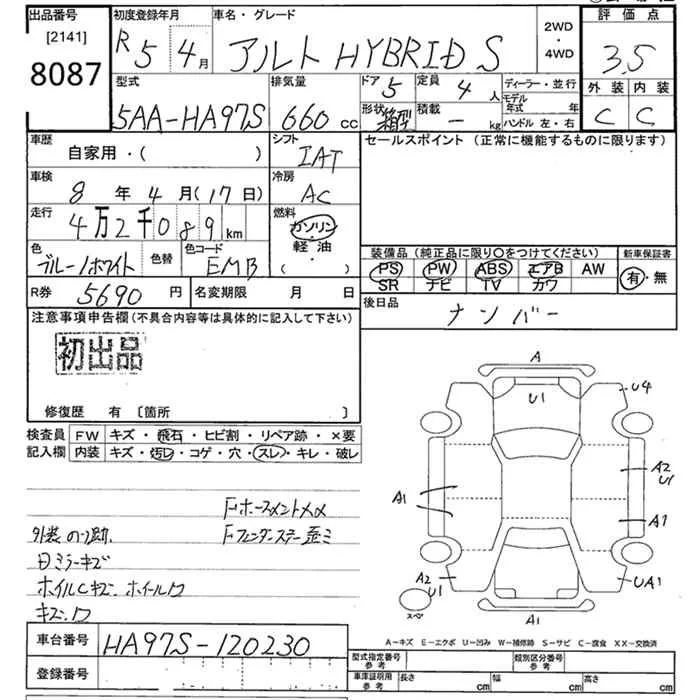 出品番号
[2141]
8087
初度登録年月
R 5 年 4 月
車名・グレード
アルト HYBRID S
2WD
・
4WD
評価点
3.5
外装 内装
C C
型式
5AA-HA97S
排気量
660 cc
ドア 5
定員 4 人
形状 箱型
積載 - kg
ディーラー・並行
モデル年式 年
ハンドル 左・右
車歴
自家用・( )
シフト
IAT
セールスポイント (正常に機能するものに限ります)
車検
8 年 4 月 (17 日)
冷房
AC
走行
4万2千089 km
燃料
ガソリン
軽油
( )
色
ブルー/ホワイト
色替
色コード
EMB
装備品 (純正品に限り○をつけてください)
新車保証書
PS PW ABS エアB AW
SR ナビ TV カワ
有・無
R券 5690 円
名変期限 月 日
後日品
ナンバー
注意事項申告欄 (不具合内容等は具体的に記入して下さい)
初出品
修復歴 有 [箇所 ]
検査員
記入欄
FW キズ・飛石・ヒビ割・リペア跡・×要
内装 キズ・汚レ・コゲ・穴・スレ・キレ・破レ
Fフェンダーステー歪ミ
ミラーキズ
ホイルCキズ. ホイールワ
キズ.ワ
A
U1
U4
A2
U1
A1
A1
A2
U1
UA1
スペア
A1
A-キズ E-エクボ U-凹み W-補修跡 S-サビ C-腐食 XX-交換済
車台番号 HA97S-120230
登録番号
型式指定番号
参考
類別区分番号
参考
車庫証明用
参考
長さ cm 幅 cm 高さ cm